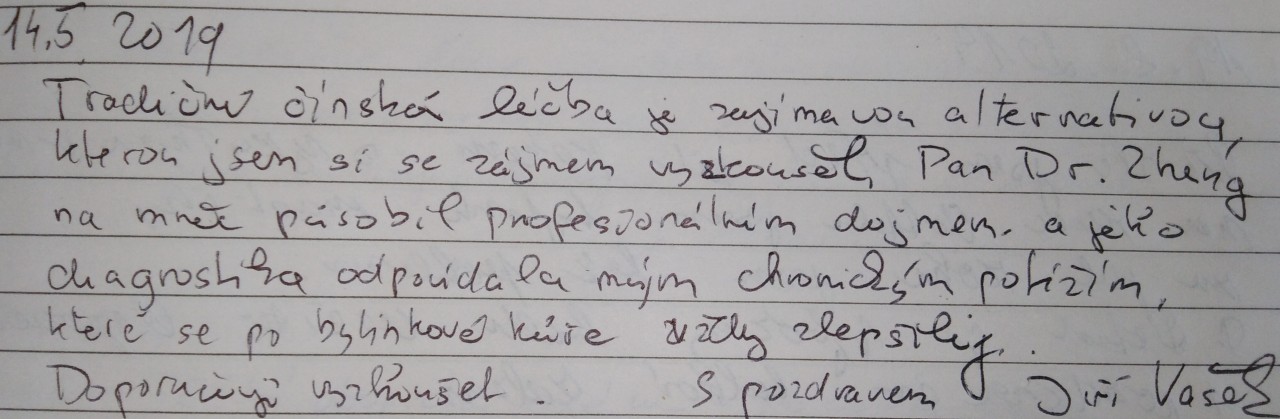 14.5 2019
Tradiční čínská léčba je zajímavou alternativou,
kterou jsem si se zájmem vyzkoušel. Pan Dr. Zheng
na mně působil profesionálním dojmem. a jeho
diagnostika odpovídala mým chronickým potížím,
které se po bylinkové kúře vždy zlepšily.
Doporučuji vyzkoušet. S pozdravem Jiří Vašek